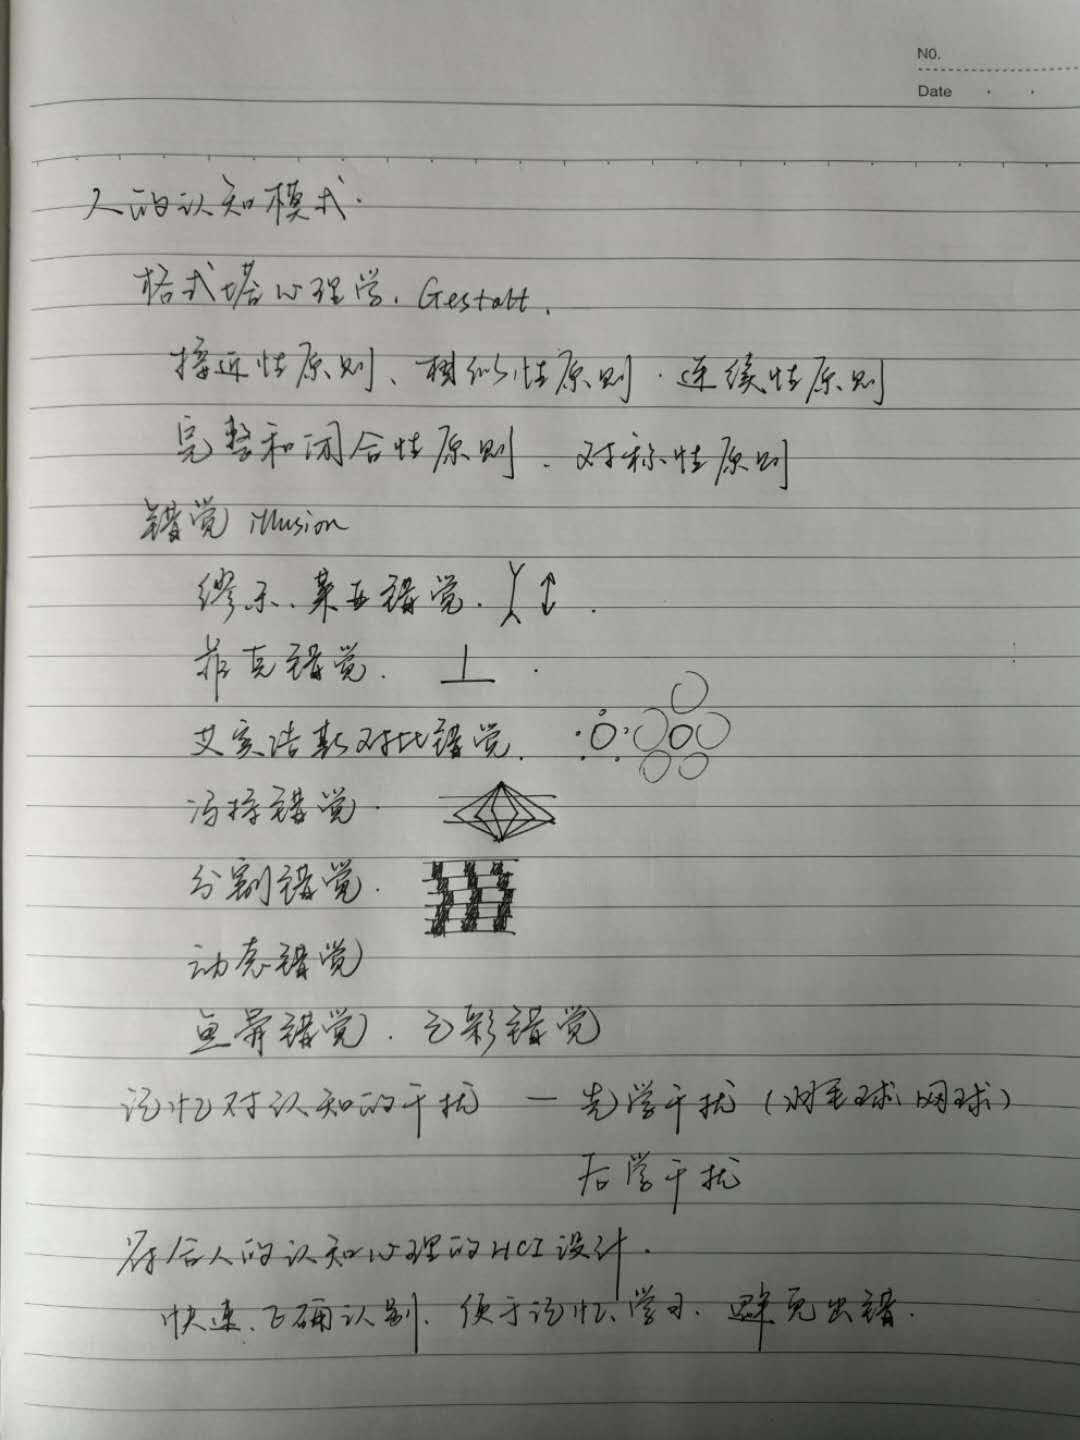 NO.
Date
人的认知模式.
格式塔心理学. Gestalt.
接近性原则、相似性原则. 连续性原则
完整和闭合性原则. 对称性原则
错觉 illusion
缪氏、莱亚错觉.
菲克错觉.
艾宾浩斯对比错觉.
冯特错觉.
分割错觉.
动态错觉
鱼骨错觉. 色彩错觉
记忆对认知的干扰 — 先学干扰 (羽毛球 网球)
后学干扰
符合人的认知心理的HCI设计.
快速、正确认别. 便于记忆、学习. 避免出错.